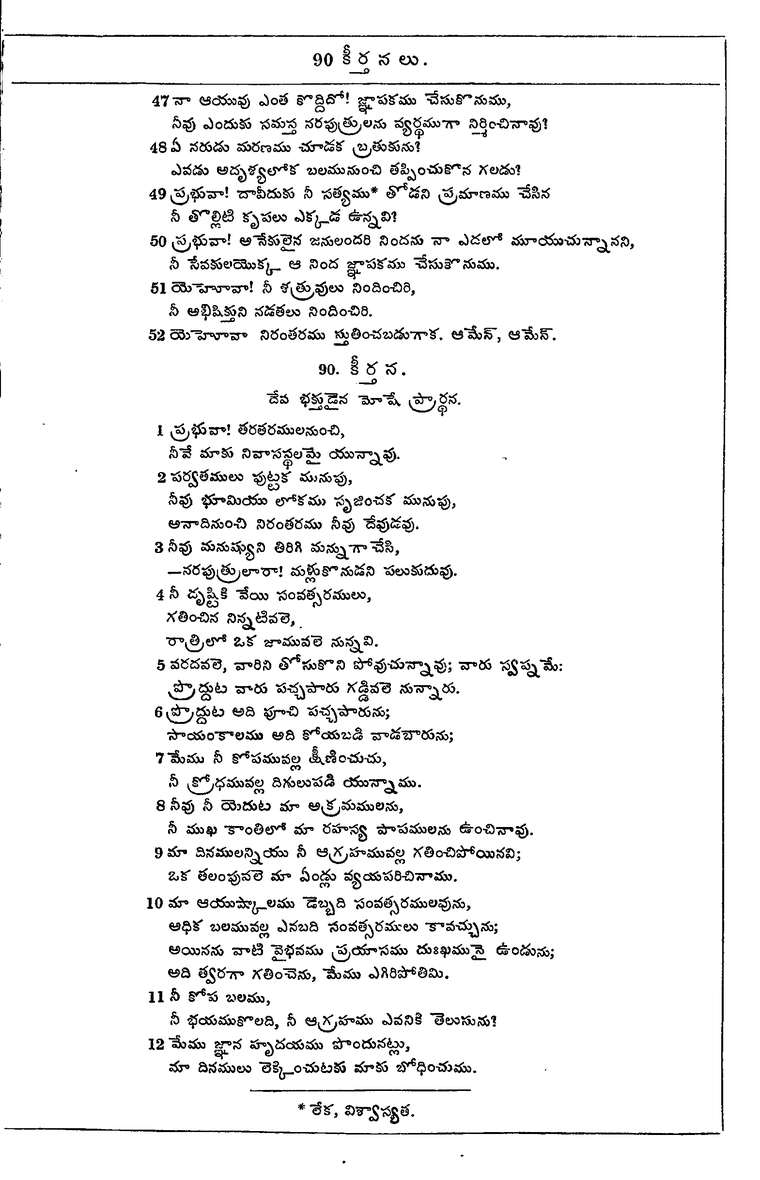 90 కీర్తనలు.
47 నా ఆయువు ఎంత కొద్దిదో! జ్ఞాపకము చేసుకొనుము,
నీవు ఎందుకు సమస్త నరపుత్రులను వ్యర్థముగా నిర్మించినావు?
48 ఏ నరుడు మరణము చూడక బ్రతుకును?
ఎవడు అదృశ్యలోక బలమునుంచి తప్పించుకొన గలడు?
49 ప్రభువా! దావీదుకు నీ సత్యము* తోడని ప్రమాణము చేసిన
నీ తొల్లిటి కృపలు ఎక్కడ ఉన్నవి?
50 ప్రభువా! అనేకులైన జనులందరి నిందను నా ఎదలో మూయుచున్నానని,
నీ సేవకులయొక్క ఆ నింద జ్ఞాపకము చేసుకొనుము.
51 యెహెూవా! నీ శత్రువులు నిందించిరి,
నీ అభిషిక్తుని నడతలు నిందించిరి.
52 యెహెూవా నిరంతరము స్తుతించబడుగాక. ఆమేన్, ఆమేన్.
90. కీర్తన.
దేవ భక్తుడైన మోషే ప్రార్థన.
1 ప్రభువా! తరతరములనుంచి,
నీవే మాకు నివాసస్థలమై యున్నావు.
2 పర్వతములు పుట్టక మునుపు,
నీవు భూమియు లోకము సృజించక మునుపు,
అనాదినుంచి నిరంతరము నీవు దేవుడవు.
3 నీవు మనుష్యుని తిరిగి మన్నుగా చేసి,
—నరపుత్రులారా! మళ్లుకొనుడని పలుకుదువు.
4 నీ దృష్టికి వేయి సంవత్సరములు,
గతించిన నిన్నటివలె,
రాత్రిలో ఒక జామువలె నున్నవి.
5 వరదవలె, వారిని తోసుకొని పోవుచున్నావు; వారు స్వప్నమే:
ప్రొద్దుట వారు పచ్చపారు గడ్డివలె నున్నారు.
6 ప్రొద్దుట అది పూచి పచ్చపారును;
సాయంకాలము అది కోయబడి వాడబారును;
7 మేము నీ కోపమువల్ల క్షీణించుచు,
నీ క్రోధమువల్ల దిగులుపడి యున్నాము.
8 నీవు నీ యెదుట మా అక్రమములను,
నీ ముఖ కాంతిలో మా రహస్య పాపములను ఉంచినావు.
9 మా దినములన్నియు నీ ఆగ్రహమువల్ల గతించిపోయినవి;
ఒక తలంపువలె మా ఏండ్లు వ్యయపరిచినాము.
10 మా ఆయుష్కాలము డెబ్బది సంవత్సరములవును,
అధిక బలమువల్ల ఎనబది సంవత్సరములు కావచ్చును;
అయినను వాటి వైభవము ప్రయాసము దుఃఖమునై ఉండును;
అది త్వరగా గతించెను, మేము ఎగిరిపోతిమి.
11 నీ కోప బలము,
నీ భయముకొలది, నీ ఆగ్రహము ఎవనికి తెలుసును?
12 మేము జ్ఞాన హృదయము పొందునట్లు,
మా దినములు లెక్కించుటకు మాకు బోధించుము.
* లేక, విశ్వాస్యత.